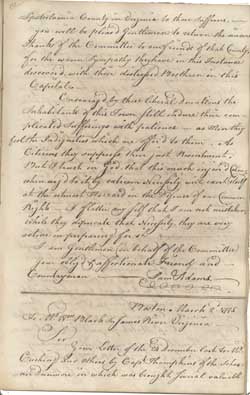 Spotsilvania County in Virginia to their Sufferers,
you will be pleasd Gentlemen to return the sincere
thanks of the Committee to our friends of that County
for the warm Sympathy they have in this Instance
discoverd, with their distressed Brethren in this
Capital.
Encouraged by these liberal Donations the
Inhabitants of this Town still endure their com
plicated Sufferings with patience — as Men they
feel the Indignities which are offerd to them. As
Citizens they suppress their just Resentment.
But I trust in God, that this much injurd
when urgd to it by extreme Necessity will
at the utmost Hazard in the Defence of our Common
Rights. I flatter my self that I am not mistaken
while they deprecate that Necessity, they are very
active in preparing for it.
I am Gentlemen in behalf of the Committee
your oblig'd & affectionate Friend and
Countryman
Sam Adams
Boston March 2 1775
To Mr Black in James River Virginia
Sir
Your Letter of the December last to Mr
Cushing and others by Cap Tompkins of the Schoo
in which was brought sund valuable